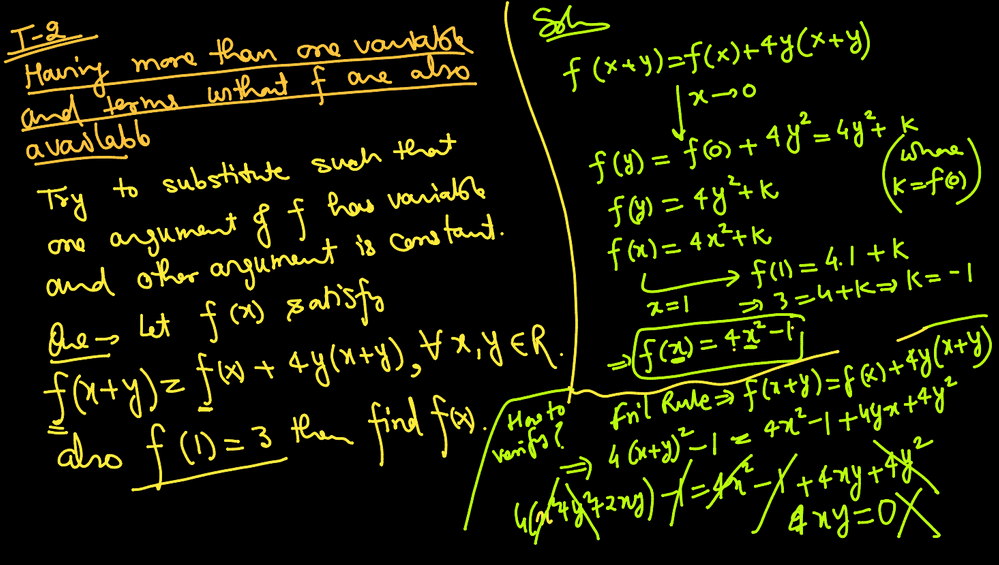 T-2
Having more than one variable
and terms without f are also
available
Try to substitute such that
one argument of f has variable
and other argument is constant.
Que → Let f(x) satisfy
f(x+y) = f(x) + 4y(x+y), ∀ x, y ∈ R.
also f(1) = 3 then find f(x).
Soln
f(x+y) = f(x) + 4y(x+y)
x → 0
f(y) = f(0) + 4y² = 4y² + k
(where k = f(0))
f(y) = 4y² + k
f(x) = 4x² + k
x=1 → f(1) = 4.1 + k
⇒ 3 = 4 + k ⇒ k = -1
⇒ f(x) = 4x² - 1
How to
verify?
Fnl Rule ⇒ f(x+y) = f(x) + 4y(x+y)
⇒ 4(x+y)² - 1 = 4x² - 1 + 4yx + 4y²
4(x²+y²+2xy) - 1 = 4x² - 1 + 4xy + 4y²
4xy = 0 X